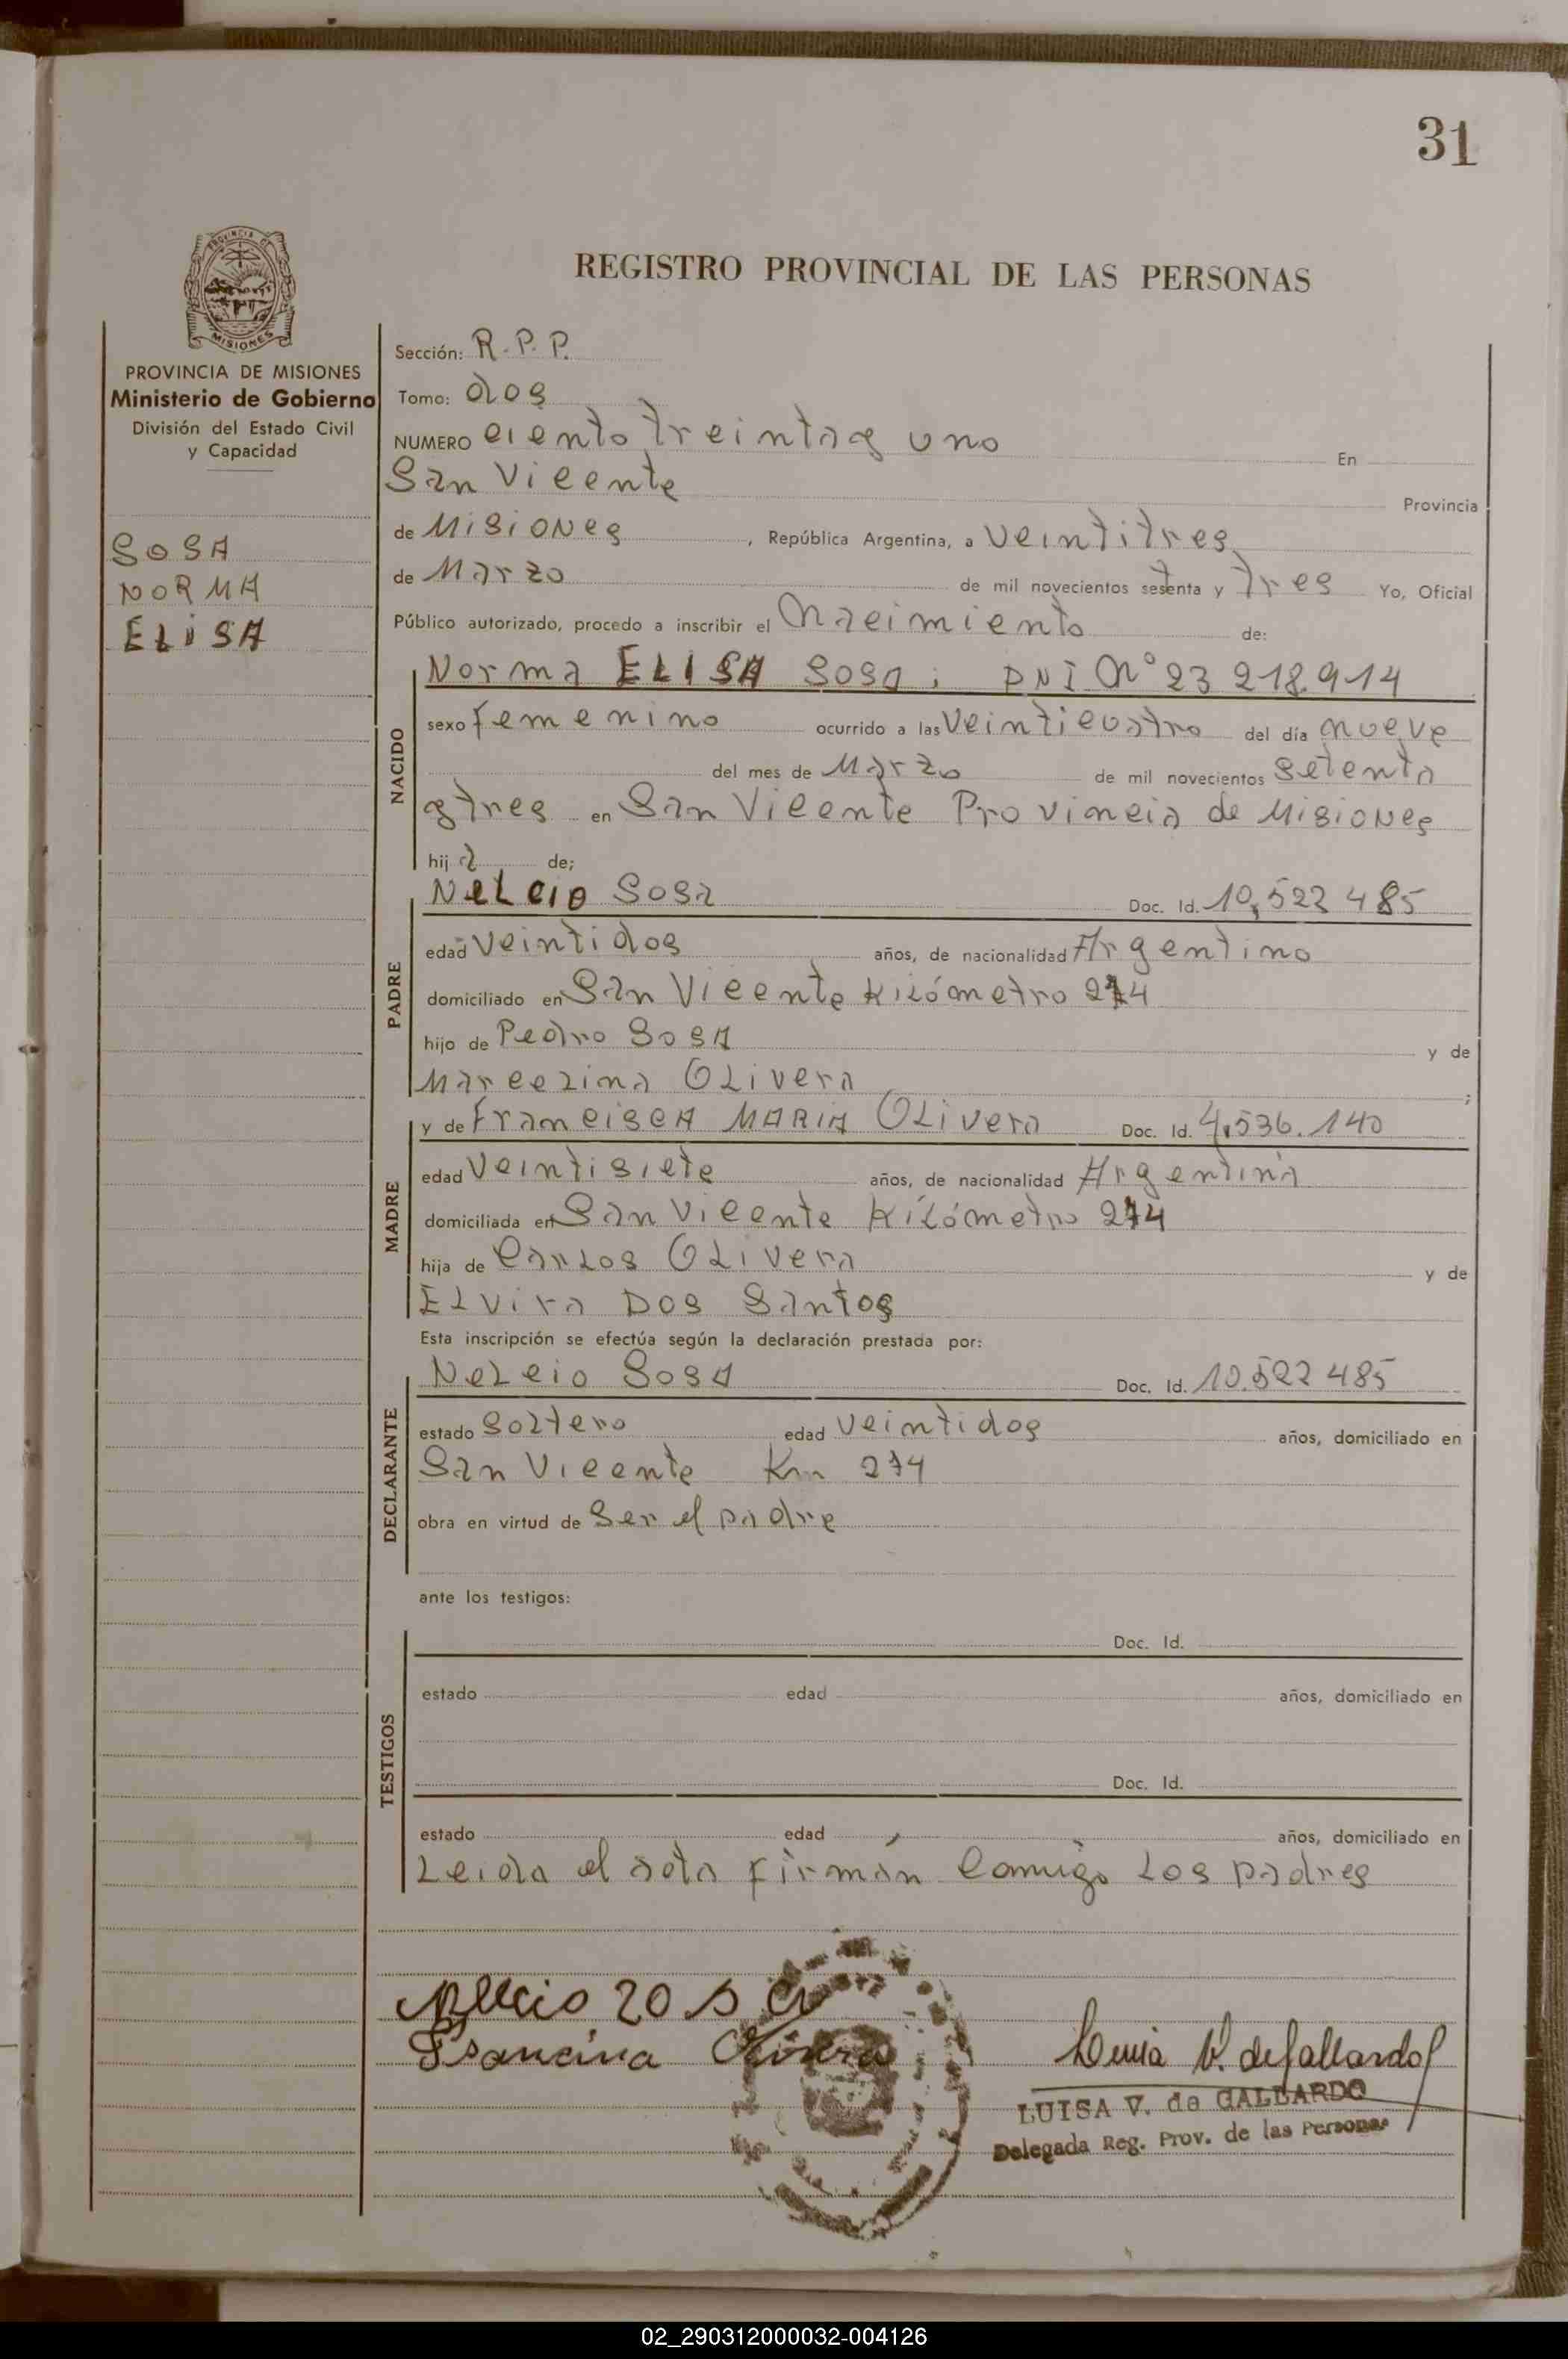 31
PROVINCIA DE
MISIONES
REGISTRO PROVINCIAL DE LAS PERSONAS
PROVINCIA DE MISIONES
Ministerio de Gobierno
División del Estado Civil
y Capacidad
SOSA
NORMA
ELISA
Sección: R.P.P.
Tomo: dos
NUMERO ciento treinta y uno En
San Vicente Provincia
de Misiones, República Argentina, a veintitres
de Marzo de mil novecientos setenta y tres Yo, Oficial
Público autorizado, procedo a inscribir el Nacimiento de:
NACIDO
Norma ELISA Sosa; DNI Nº 23 218.914
sexo femenino ocurrido a las veinticuatro del día nueve
del mes de Marzo de mil novecientos setenta
y tres en San Vicente Provincia de Misiones
hija de;
PADRE
Nelcio Sosa Doc. Id. 10,522 485
edad veintidos años, de nacionalidad Argentino
domiciliado en San Vicente Kilómetro 274
hijo de Pedro Sosa y de
Marcelina Olivera ;
MADRE
y de Francisca MARIA Olivera Doc. Id. 4.536.140
edad veintisiete años, de nacionalidad Argentina
domiciliada en San Vicente Kilómetro 274
hija de Carlos Olivera y de
Elvira Dos Santos
Esta inscripción se efectúa según la declaración prestada por:
DECLARANTE
Nelcio Sosa Doc. Id. 10.522 485
estado soltero edad veintidos años, domiciliado en
San Vicente Km 274
obra en virtud de ser el padre
ante los testigos:
TESTIGOS
Doc. Id.
estado edad años, domiciliado en
Doc. Id.
estado edad años, domiciliado en
Leida el acta firmán comigo los padres
Luisa V. de Gallardo
LUISA V. de GALLARDO
Delegada Reg. Prov. de las Personas
02_290312000032-004126